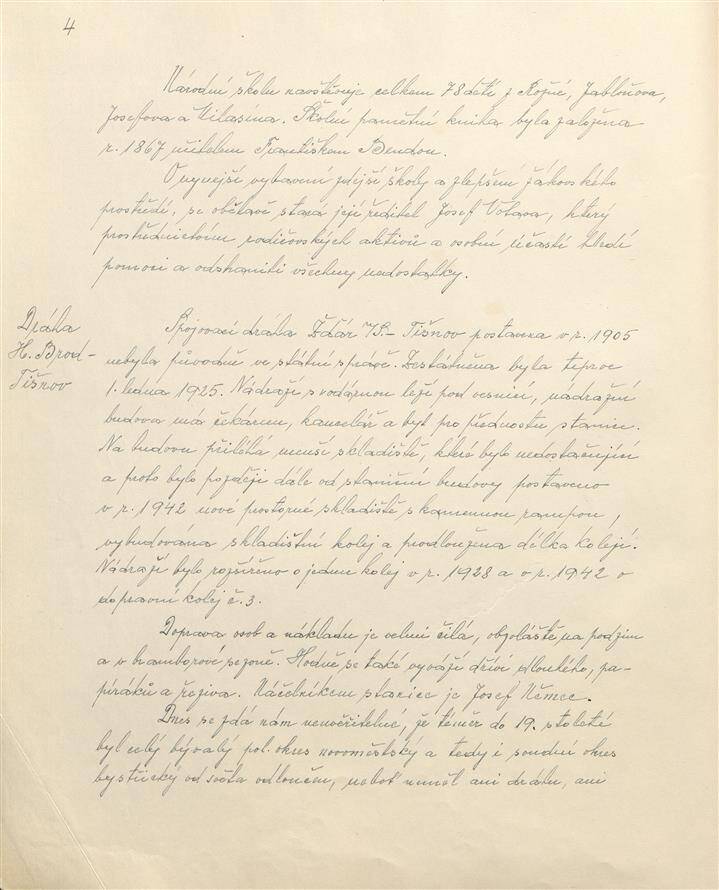 4
Národní školu navštěvuje celkem 78 dětí z Rožné, Jabloňova,
Josefova a Milasína. Školní pamětní kniha byla založena
r. 1867 učitelem Františkem Bendou.
O nynější vybavení zdejší školy a zlepšení žákovského
prostředí, se obětavě stará její ředitel Josef Votava, který
prostřednictvím rodičovských aktivů a osobní účastí hledí
pomoci a odstraniti všechny nedostatky.
Dráha
H. Brod-
Tišnov
Spojovací dráha Žďár n/S.- Tišnov postavena v r. 1905
nebyla původně ve státní správě. Zestátněna byla teprve
1. ledna 1925. Nádraží s vodárnou leží pod vesnicí, nádražní
budova má čekárnu, kancelář a byt pro přednostu stanice.
Na budovu přiléhá menší skladiště, které bylo nedostačující
a proto bylo později dále od staniční budovy postaveno
v r. 1942 nové prostorné skladiště s kamennou rampou,
vybudována skladištní kolej a prodloužena délka kolejí.
Nádraží bylo rozšířeno o jednu kolej v r. 1928 a v r. 1942 o
dopravní kolej č. 3.
Doprava osob a nákladu je velmi čilá, obzvláště na podzim
a v bramborové sezoně. Hodně se také vyváží dříví dlouhého, pa-
píráků a řeziva. Náčelníkem stanice je Josef Němec.
Dnes se zdá nám neuvěřitelné, že téměř do 19. století
byl celý bývalý pol. okres novoměstský a tedy i soudní okres
bystřický od světa odloučen, neboť neměl ani dráhu, ani